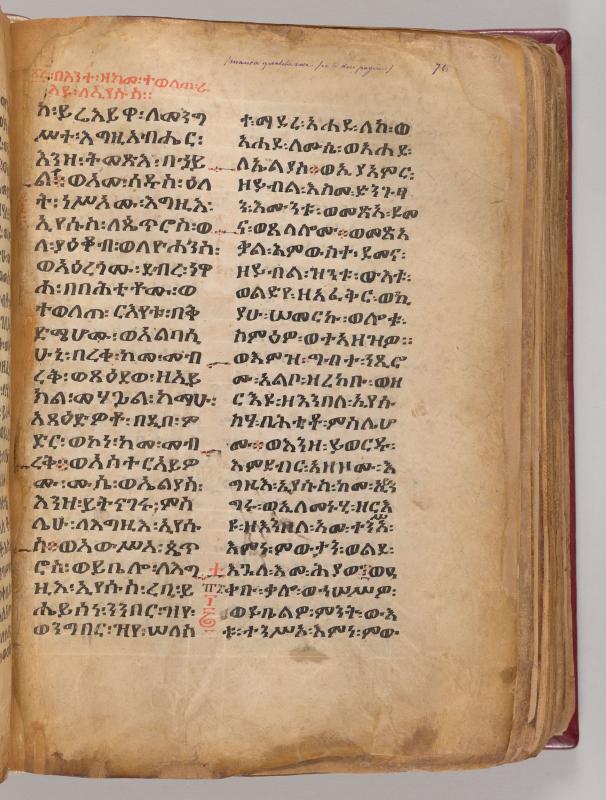 76
በእንተ፡ ዘከመ፡ ተወለጠ፡ ራ
እዩ፡ ለኢየሱስ፡፡
ከ፡ ይሬእይዋ፡ ለመንግ
ሥተ፡ እግዚአብሔር፡
እንዘ፡ ትመጽእ፡ በኃይ
ል፡ ወእመ፡ ሰዱስ፡ ዕለ
ት፡ ነሥአሙ፡ እግዚእ፡
ኢየሱስ፡ ለጴጥሮስ፡ ወ
ለ፡ ያዕቆብ፡ ወለዮሐንስ፡
ወአዕረጎሙ፡ ደብረ፡ ነዋ
ሐ፡ በበሕቲቶሙ፡ ወ
ተወለጠ፡ ርእየቱ፡ በቅ
ድሜሆሙ፡ ወአልባሲ
ሁኒ፡ በረቀ፡ ከመ፡ መብ
ረቅ፡ ወጸዕደወ፡ ዘኢይ
ክል፡ መሃጒል፡ ከማሁ፡
አጸዕድዎቶ፡ በዲበ፡ ም
ድር፡ ወኮነ፡ ከመ፡ መብ
ረቅ፡ ወአስተርአይዎ
ሙ፡ ሙሴ፡ ወኤልያስ፡
እንዘ፡ ይትናገሩ፡ ምስ
ሌሁ፡ ለእግዚእ፡ ኢየሱ
ስ፡ ወአውሥአ፡ ጴጥ
ሮስ፡ ወይቤሎ፡ ለእግ
ዚእ፡ ኢየሱስ፡ ረቢ፡ ይ
ሔይሰነ፡ ንንበር፡ ዝየ፡
ወንግበር፡ ዝየ፡ ሠለስ
ተ፡ ማኅደረ፡ አሐደ፡ ለከ፡ ወ
አሐደ፡ ለሙሴ፡ ወአሐደ፡
ለኤልያስ፡ ወኢያአምር፡
ዘይብል፡ እስመ፡ ድንጉፃ
ን፡ እሙንቱ፡ ወመጽአ፡ ደመ
ና፡ ወጸለሎሙ፡ ወመጽአ
ቃል፡ እምውስተ፡ ደመና፡
ዘይብል፡ ዝንቱ፡ ውእቱ፡
ወልድየ፡ ዘአፈቅር፡ ወኪ
ያሁ፡ ሠመርኩ፡ ወሎቱ፡
ስምዕዎ፡ ወተአዘዝዎ፡፡
ወእምዝ፡ ግብተ፡ ነጺሮ
ሙ፡ አልቦ፡ ዘረከቡ፡ ወዘ
ርእዩ፡ ዘእንበለ፡ ኢየሱ
ስሃ፡ በሕቲቶ፡ ምስሌሆ
ሙ፡ ወእንዘ፡ ይወርዱ፡
እምደብር፡ አዘዞሙ፡ እ
ግዚእ፡ ኢየሱስ፡ ከመ፡ አይን
ግሩ፡ ወኢለመኑሂ፡ ዘርእ
ዩ፡ ዘእንበለ፡ አመ፡ ተንሥአ፡
እምነ፡ ምውታን፡ ወልደ፡
እጓለ፡ እመ፡ ሕያው፡ ወዐ
ቀቡ፡ ቃሎ፡ ወኀሠሥዎ፡
ወይቤልዎ፡ ምንት፡ ውእ
ቱ፡ ተንሥአ፡ እምነ፡ ምው